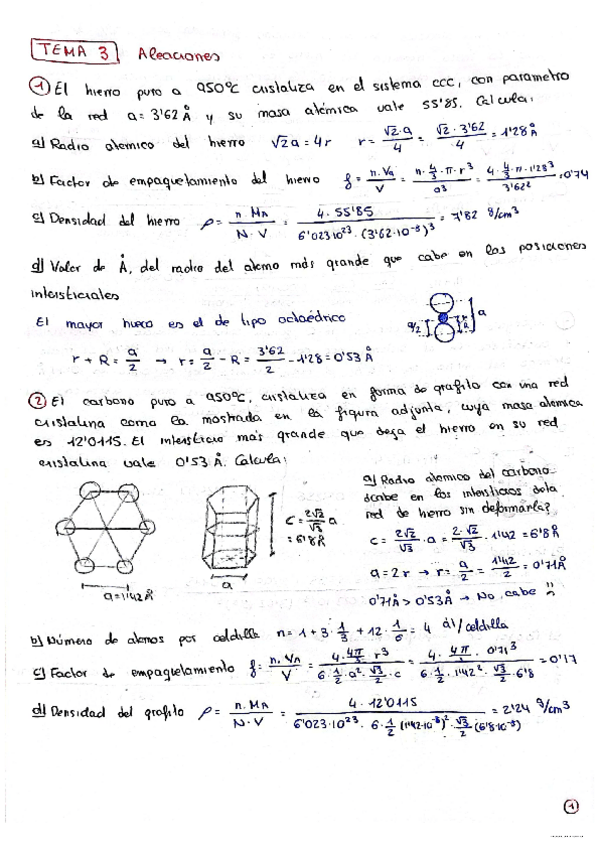 TEMA 3 Aleaciones
① El hierro puro a 950ºC cristaliza en el sistema ccc, con parametro
de la red a = 3'62 Å y su masa atómica vale 55'85. Calcula:
a) Radio atomico del hierro √2a = 4r r = √2·a/4 = √2·3'62/4 = 1'28 Å
b) Factor de empaquetamiento del hierro f = n·Va/V = n·4/3·π·r³/a³ = 4·4/3·π·1'28³/3'62² = 0'74
c) Densidad del hierro ρ = n·Mn/N·V = 4·55'85/6'023·10²³·(3'62·10⁻⁸)³ = 7'82 g/cm³
d) Valor de Å, del radio del atomo más grande que cabe en las posiciones
intersticiales
El mayor hueco es el de tipo octaédrico
a/2 r R a
r + R = a/2 → r = a/2 - R = 3'62/2 - 1'28 = 0'53 Å
② El carbono puro a 950ºC, cristaliza en forma de grafito con una red
cristalina como la mostrada en la figura adjunta, cuya masa atomica
es 12'0115. El intersticio más grande que deja el hierro en su red
cristalina vale 0'53 Å. Calcula:
a) Radio atomico del carbono
¿cabe en los intersticios de la
red de hierro sin deformarla?
c = 2√2/√3 a
= 6'8 Å
a = 1'42 Å
a
c = 2√2/√3 · a = 2·√2/√3 · 1'42 = 6'8 Å
a = 2r → r = a/2 = 1'42/2 = 0'71 Å
0'71 Å > 0'53 Å → No cabe
b) Número de atomos por celdilla n = 1 + 3·1/3 + 12·1/6 = 4 át/celdilla
c) Factor de empaquetamiento f = n·Va/V = 4·4π/3·r³/6·1/2·a²·√3/2·c = 4·4π/3·0'71³/6·1/2·1'42²·√3/2·6'8 = 0'17
d) Densidad del grafito ρ = n·Mn/N·V = 4·12'0115/6'023·10²³·6·1/2(1'42·10⁻⁸)²·√3/2(6'8·10⁻⁸) = 2'24 g/cm³
1